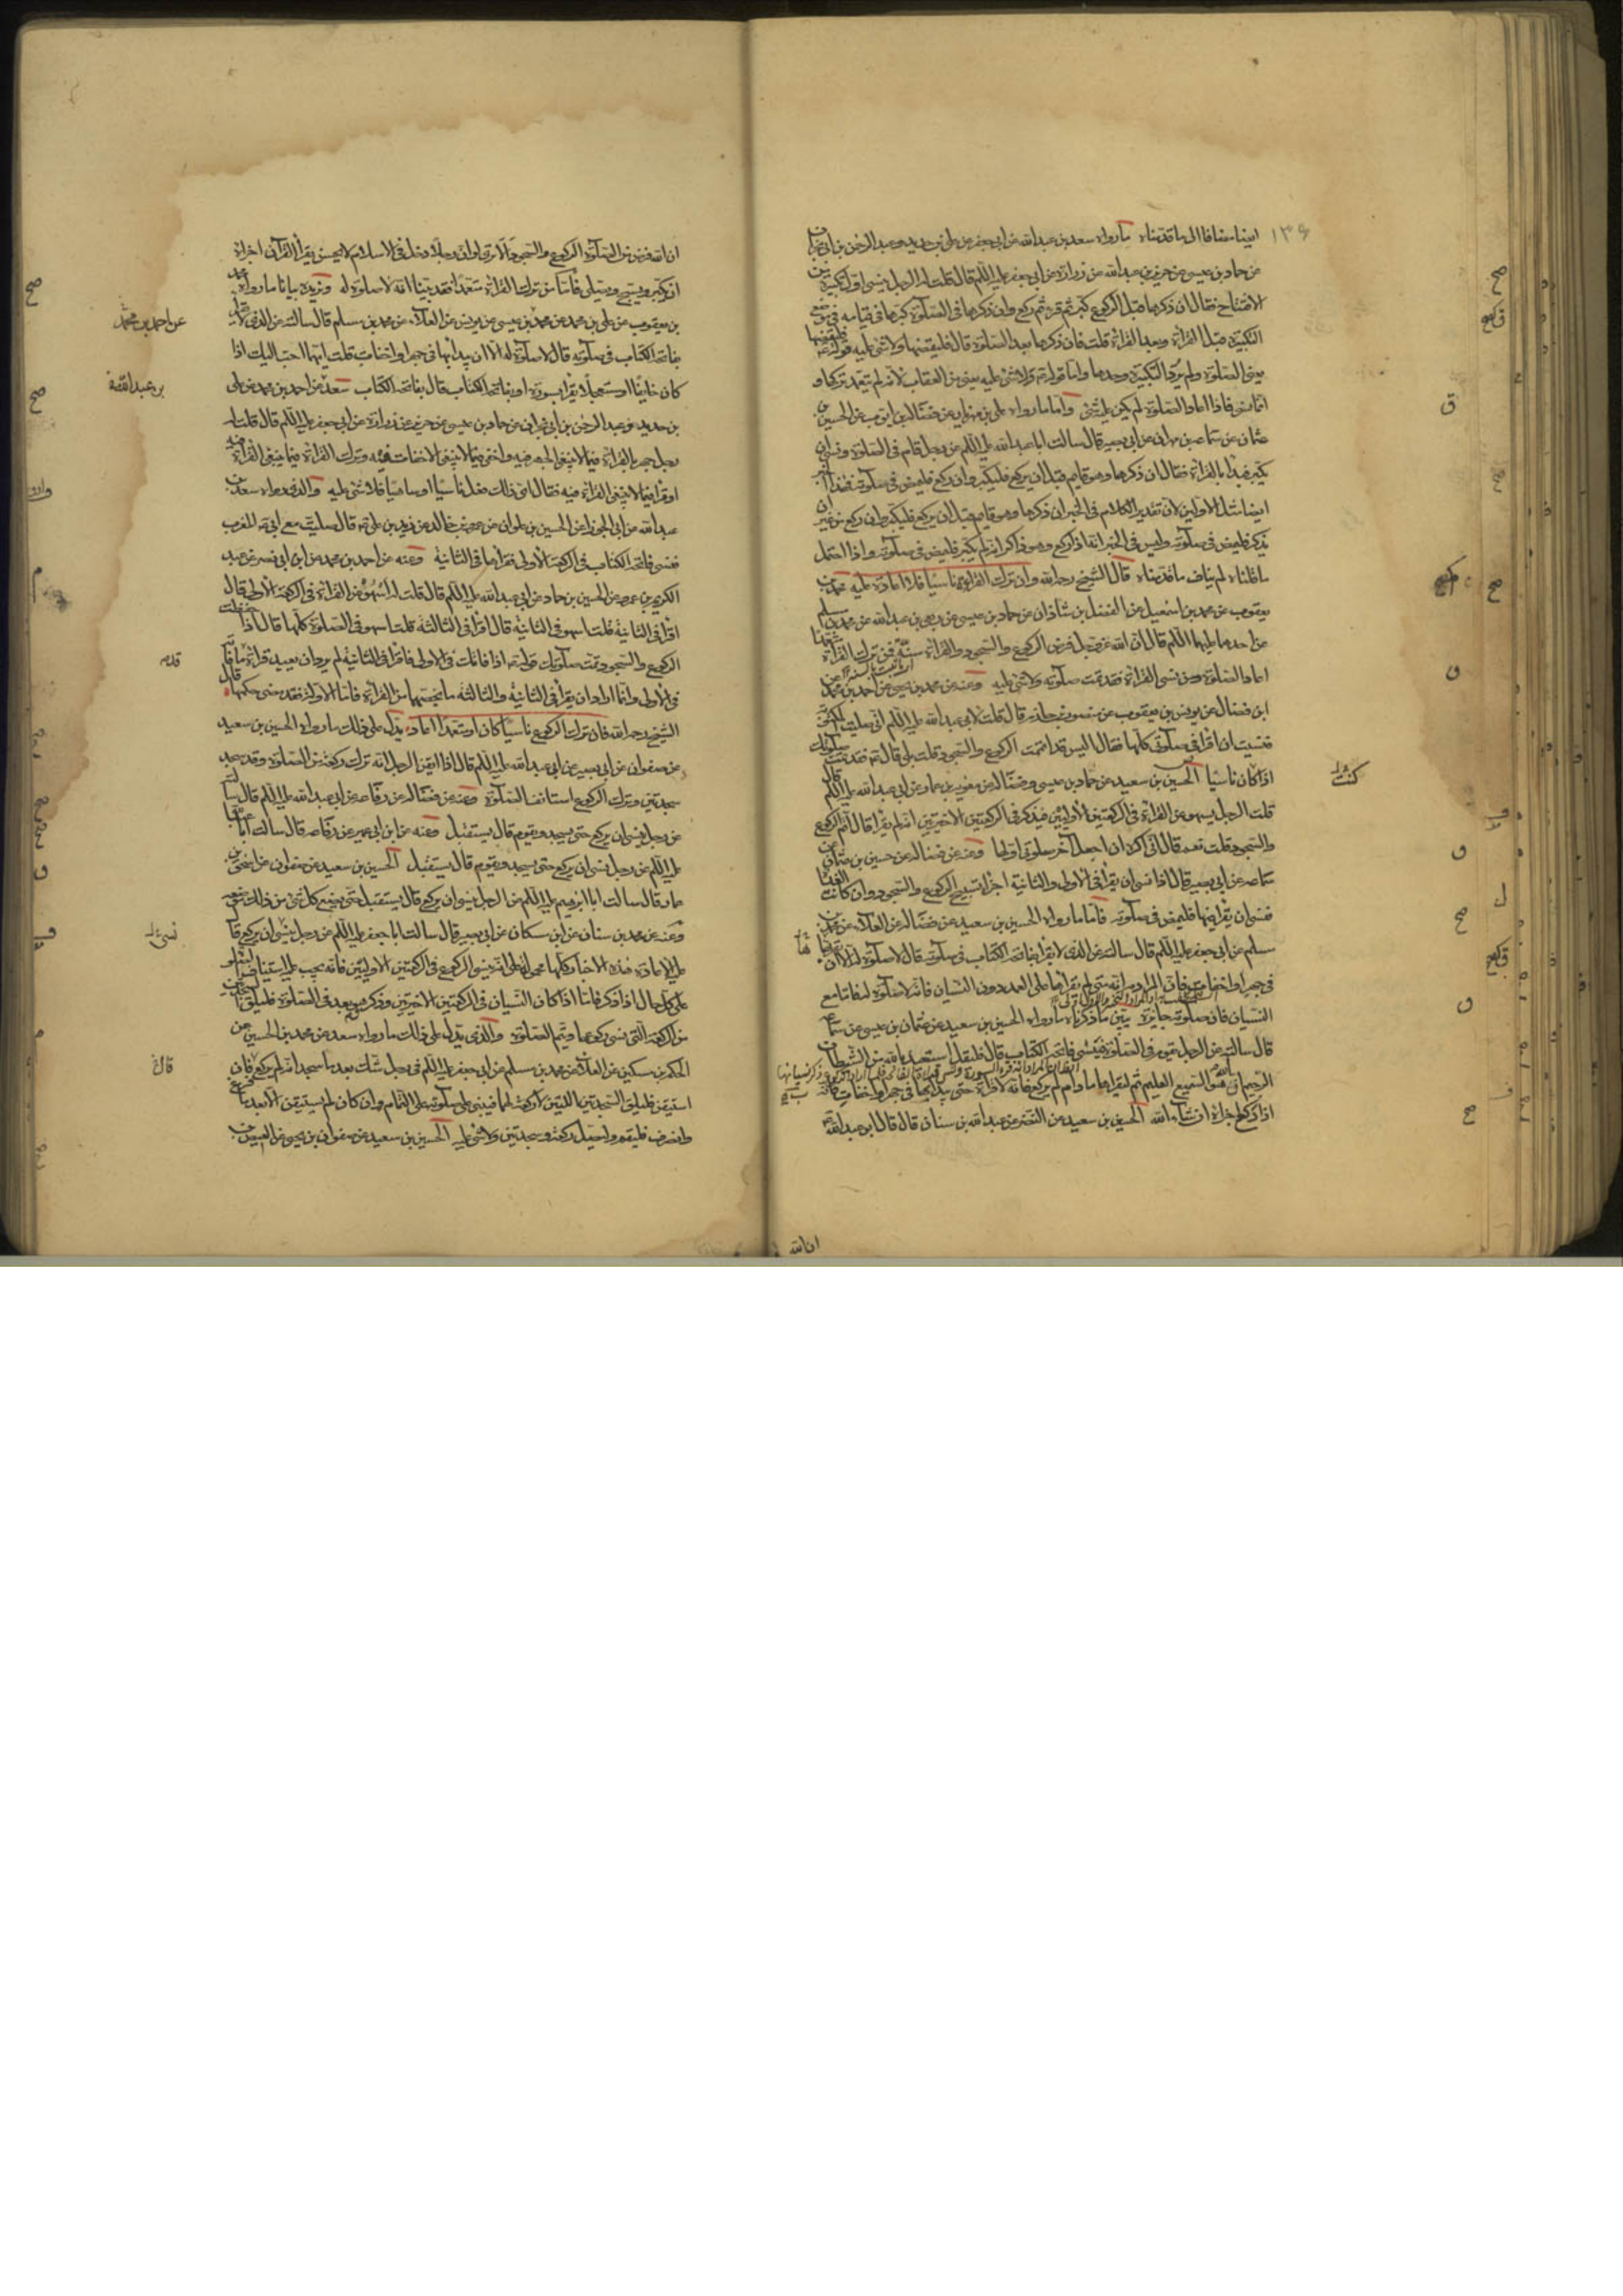 ١٣٦
ايضا مضافا الى ما قدمناه ما رواه سعد بن عبد الله عن ابي جعفر عن علي بن حديد وعبد الرحمن بن ابي نجران
عن حماد بن عيسى عن حريز بن عبد الله عن زرارة عن ابي جعفر عليه السلم قال قلت له الرجل ينسى اول تكبيرة من
الافتتاح فقال ان ذكرها قبل الركوع كبر ثم قرء ثم ركع وان ذكرها في الصلوة كبرها في قيامه في موضع
التكبيرة قبل القراءة وبعد القراءة قلت فان ذكرها بعد الصلوة قال فليقضها ولا شئ عليه قوله فليقضها
يعني الصلوة ولم يرد التكبيرة وحدها واما قوله ولا شئ عليه يعني من العقاب لانه لم يتعمد تركها و
انما نسى فاذا اعاد الصلوة لم يكن عليه شئ واما ما رواه علي بن مهزيار عن فضالة بن ايوب عن الحسين بن
عثمان عن سماعة بن مهران عن ابي بصير قال سالت ابا عبد الله عليه السلم عن رجل قام في الصلوة ونسى ان
يكبر فبدأ بالقراءة فقال ان ذكرها وهو قايم قبل ان يركع فليكبر وان ركع فليمض في صلوته فهذا الخبر
ايضا مثل الاولين لان تقدير الكلام في الخبر ان ذكرها وهو قايم قبل ان يركع فليكبر وان ركع من غير ان
يذكر فليمض في صلوته وليس في الخبر انه اذا ركع وهو ذاكر انه لم يكبر فليمض في صلوته واذا احتمل
ما قلناه لم يناف ما قدمناه قال الشيخ رحمه الله وان ترك القراءة ناسيا فلا اعادة عليه محمد بن
يعقوب عن محمد بن اسمعيل عن الفضل بن شاذان عن حماد بن عيسى عن ربعي بن عبد الله عن محمد بن مسلم
عن احدهما عليهما السلم قال ان الله عز وجل فرض الركوع والسجود والقراءة سنة فمن ترك القراءة متعمدا
اعاد الصلوة ومن نسى القراءة فقد تمت صلوته ولا شئ عليه وعنه عن محمد بن يحيى عن احمد بن محمد عن
ابن فضال عن يونس بن يعقوب عن منصور بن حازم قال قلت لابي عبد الله عليه السلم اني صليت المكتوبة
فنسيت ان اقرأ في صلوتي كلها فقال اليس قد اتممت الركوع والسجود قلت بلى قال فقد تمت صلوتك
اذا كان ناسيا الحسين بن سعيد عن حماد بن عيسى وفضالة عن معوية بن عمار عن ابي عبد الله عليه السلم قال
كنت
قلت الرجل يسهو عن القراءة في الركعتين الاوليين فيذكر في الركعتين الاخيرتين انه لم يقرأ قال اتم الركوع
والسجود قلت نعم قال اني اكره ان اجعل آخر صلوتي اولها وعنه عن فضالة عن حسين بن عثمان عن
سماعة عن ابي بصير قال اذا نسى ان يقرأ في الاولى والثانية اجزأه تسبيح الركوع والسجود وان كانت الغداة
فنسى ان يقرأ فيها فليمض في صلوته فاما ما رواه الحسين بن سعيد عن فضالة عن العلاء عن محمد بن
مسلم عن ابي جعفر عليه السلم قال سالته عن الذي لا يقرأ بفاتحة الكتاب في صلوته قال لا صلوة له الا ان يقرأ بها
في جهر او اخفات فان المراد به انه متى لم يقرأها على العمد دون النسيان فانه لا صلوة له فاما مع
النسيان فان صلوته جايزة يبين ما ذكرناه ما رواه الحسين بن سعيد عن عثمان بن عيسى عن سماعة
قال سالته عن الرجل يقوم في الصلوة فينسى فاتحة الكتاب قال فليقل استعيذ بالله من الشيطان
الرجيم ان الله هو السميع العليم ثم ليقرأها ما دام لم يركع فانه لا قراءة حتى يبدأ بها في جهر او اخفات فانه
اذا ركع اجزاه ان شاء الله الحسين بن سعيد عن النضر عن عبد الله بن سنان قال قال ابو عبد الله
ان الله
ان الله فرض من الصلوة الركوع والسجود الا ترى لو ان رجلا دخل في الاسلام لا يحسن يقرأ القرآن اجزاه
ان يكبر ويسبح ويصلي فاما من ترك القراءة متعمدا فقد بينا انه لا صلوة له ونزيده بيانا ما رواه محمد
عن احمد بن محمد
بن يعقوب عن علي بن محمد عن محمد بن عيسى عن يونس عن العلاء عن محمد بن مسلم قال سالته عن الذي لا يقرأ
بفاتحة الكتاب في صلوته قال لا صلوة له الا ان يبدأ بها في جهر او اخفات قلت ايهما احب اليك اذا
كان خايفا او مستعجلا يقرأ بسورة او بفاتحة الكتاب قال بفاتحة الكتاب سعد عن احمد بن محمد عن علي
بن عبد الله
بن حديد وعبد الرحمن بن ابي نجران عن حماد بن عيسى عن حريز عن زرارة عن ابي جعفر عليه السلم قال قلت له
رجل جهر بالقراءة فيما لا ينبغي الجهر فيه واخفى فيما لا ينبغي الاخفات فيه وترك القراءة فيما ينبغي القراءة فيه
او قرأ فيما لا ينبغي القراءة فيه فقال اي ذلك فعل ناسيا او ساهيا فلا شئ عليه والذي رواه سعد بن
عبد الله عن ابي الجوزا عن الحسين بن علوان عن عمرو بن خالد عن زيد بن علي قال صليت مع ابي المغرب
فنسى فاتحة الكتاب في الركعة الاولى فقرأها في الثانية وعنه عن احمد بن محمد عن ابن ابي نصر عن عبد
الكريم بن عمرو عن الحسين بن حماد عن ابي عبد الله عليه السلم قال قلت له اسهو عن القراءة في الركعة الاولى قال
اقرأ في الثانية قلت اسهو في الثانية قال اقرأ في الثالثة قلت اسهو في الصلوة كلها قال اذا حفظت
الركوع والسجود تمت صلوتك قوله اذا فاتك في الاولى فاقرأ في الثانية لم يرد ان يعيد قراءة ما فاته
في الاولى وانما اراد ان يقرأ في الثانية والثالثة ما يخصها من القراءة فاما الاولة فقد مضى حكمها قال
الشيخ رحمه الله فان ترك الركوع ناسيا كان او متعمدا اعاد يدل على ذلك ما رواه الحسين بن سعيد
عن صفوان عن ابي بصير عن ابي عبد الله عليه السلم قال اذا ايقن الرجل انه ترك ركعة من الصلوة وقد سجد
سجدتين وترك الركوع استانف الصلوة وعنه عن فضالة عن رفاعة عن ابي عبد الله عليه السلم قال سالته
عن رجل ينسى ان يركع حتى يسجد ويقوم قال يستقبل وعنه عن ابن ابي عمير عن رفاعة قال سالت ابا عبد الله
عليه السلم عن رجل نسى ان يركع حتى يسجد ويقوم قال يستقبل الحسين بن سعيد عن صفوان عن اسحق بن
عمار قال سالت ابا ابراهيم عليه السلم عن الرجل ينسى ان يركع قال يستقبل حتى يضع كل شئ من ذلك موضعه
وعنه عن محمد بن سنان عن ابن مسكان عن ابي بصير قال سالت ابا جعفر عليه السلم عن رجل ينسى ان يركع قال
نسى
عليه الاعادة فهذه الاخبار كلها محمولة على انه نسى الركوع في الركعتين الاوليين فانه يجب عليه استيناف الصلوة
على كل حال اذا ذكر فاما اذا كان النسيان في الركعتين الاخيرتين وذكر وهو بعد في الصلوة فليلق السجدتين
من الركعة التي نسى ركوعها ويتم الصلوة والذي يدل على ذلك ما رواه سعد عن محمد بن الحسين عن
الحكم بن مسكين عن العلاء عن محمد بن مسلم عن ابي جعفر عليه السلم في رجل شك بعد ما سجد انه لم يركع فان
قال
استيقن فليلق السجدتين اللتين لا ركعة لهما فيبني على صلوته على التمام وان كان لم يستيقن الا بعد ما فرغ
وانصرف فليقم وليصل ركعة وسجدتين ولا شئ عليه الحسين بن سعيد عن صفوان بن يحيى عن العيص بن